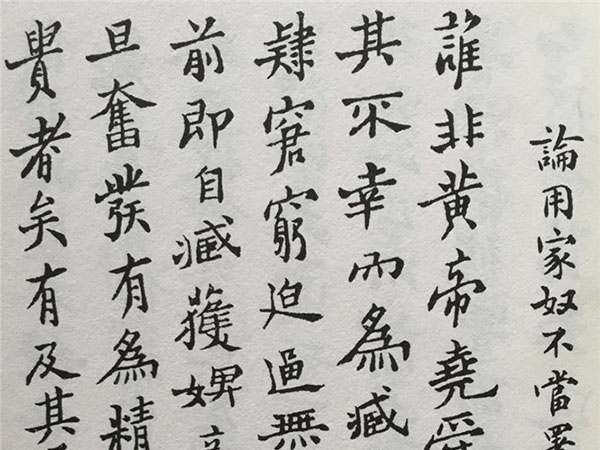 論用家奴不當署
誰非黃帝堯舜
其不幸而為臧
隸窘窮迫逼無
前即自臧獲婢
旦奮發有為精
貴者矣有及其